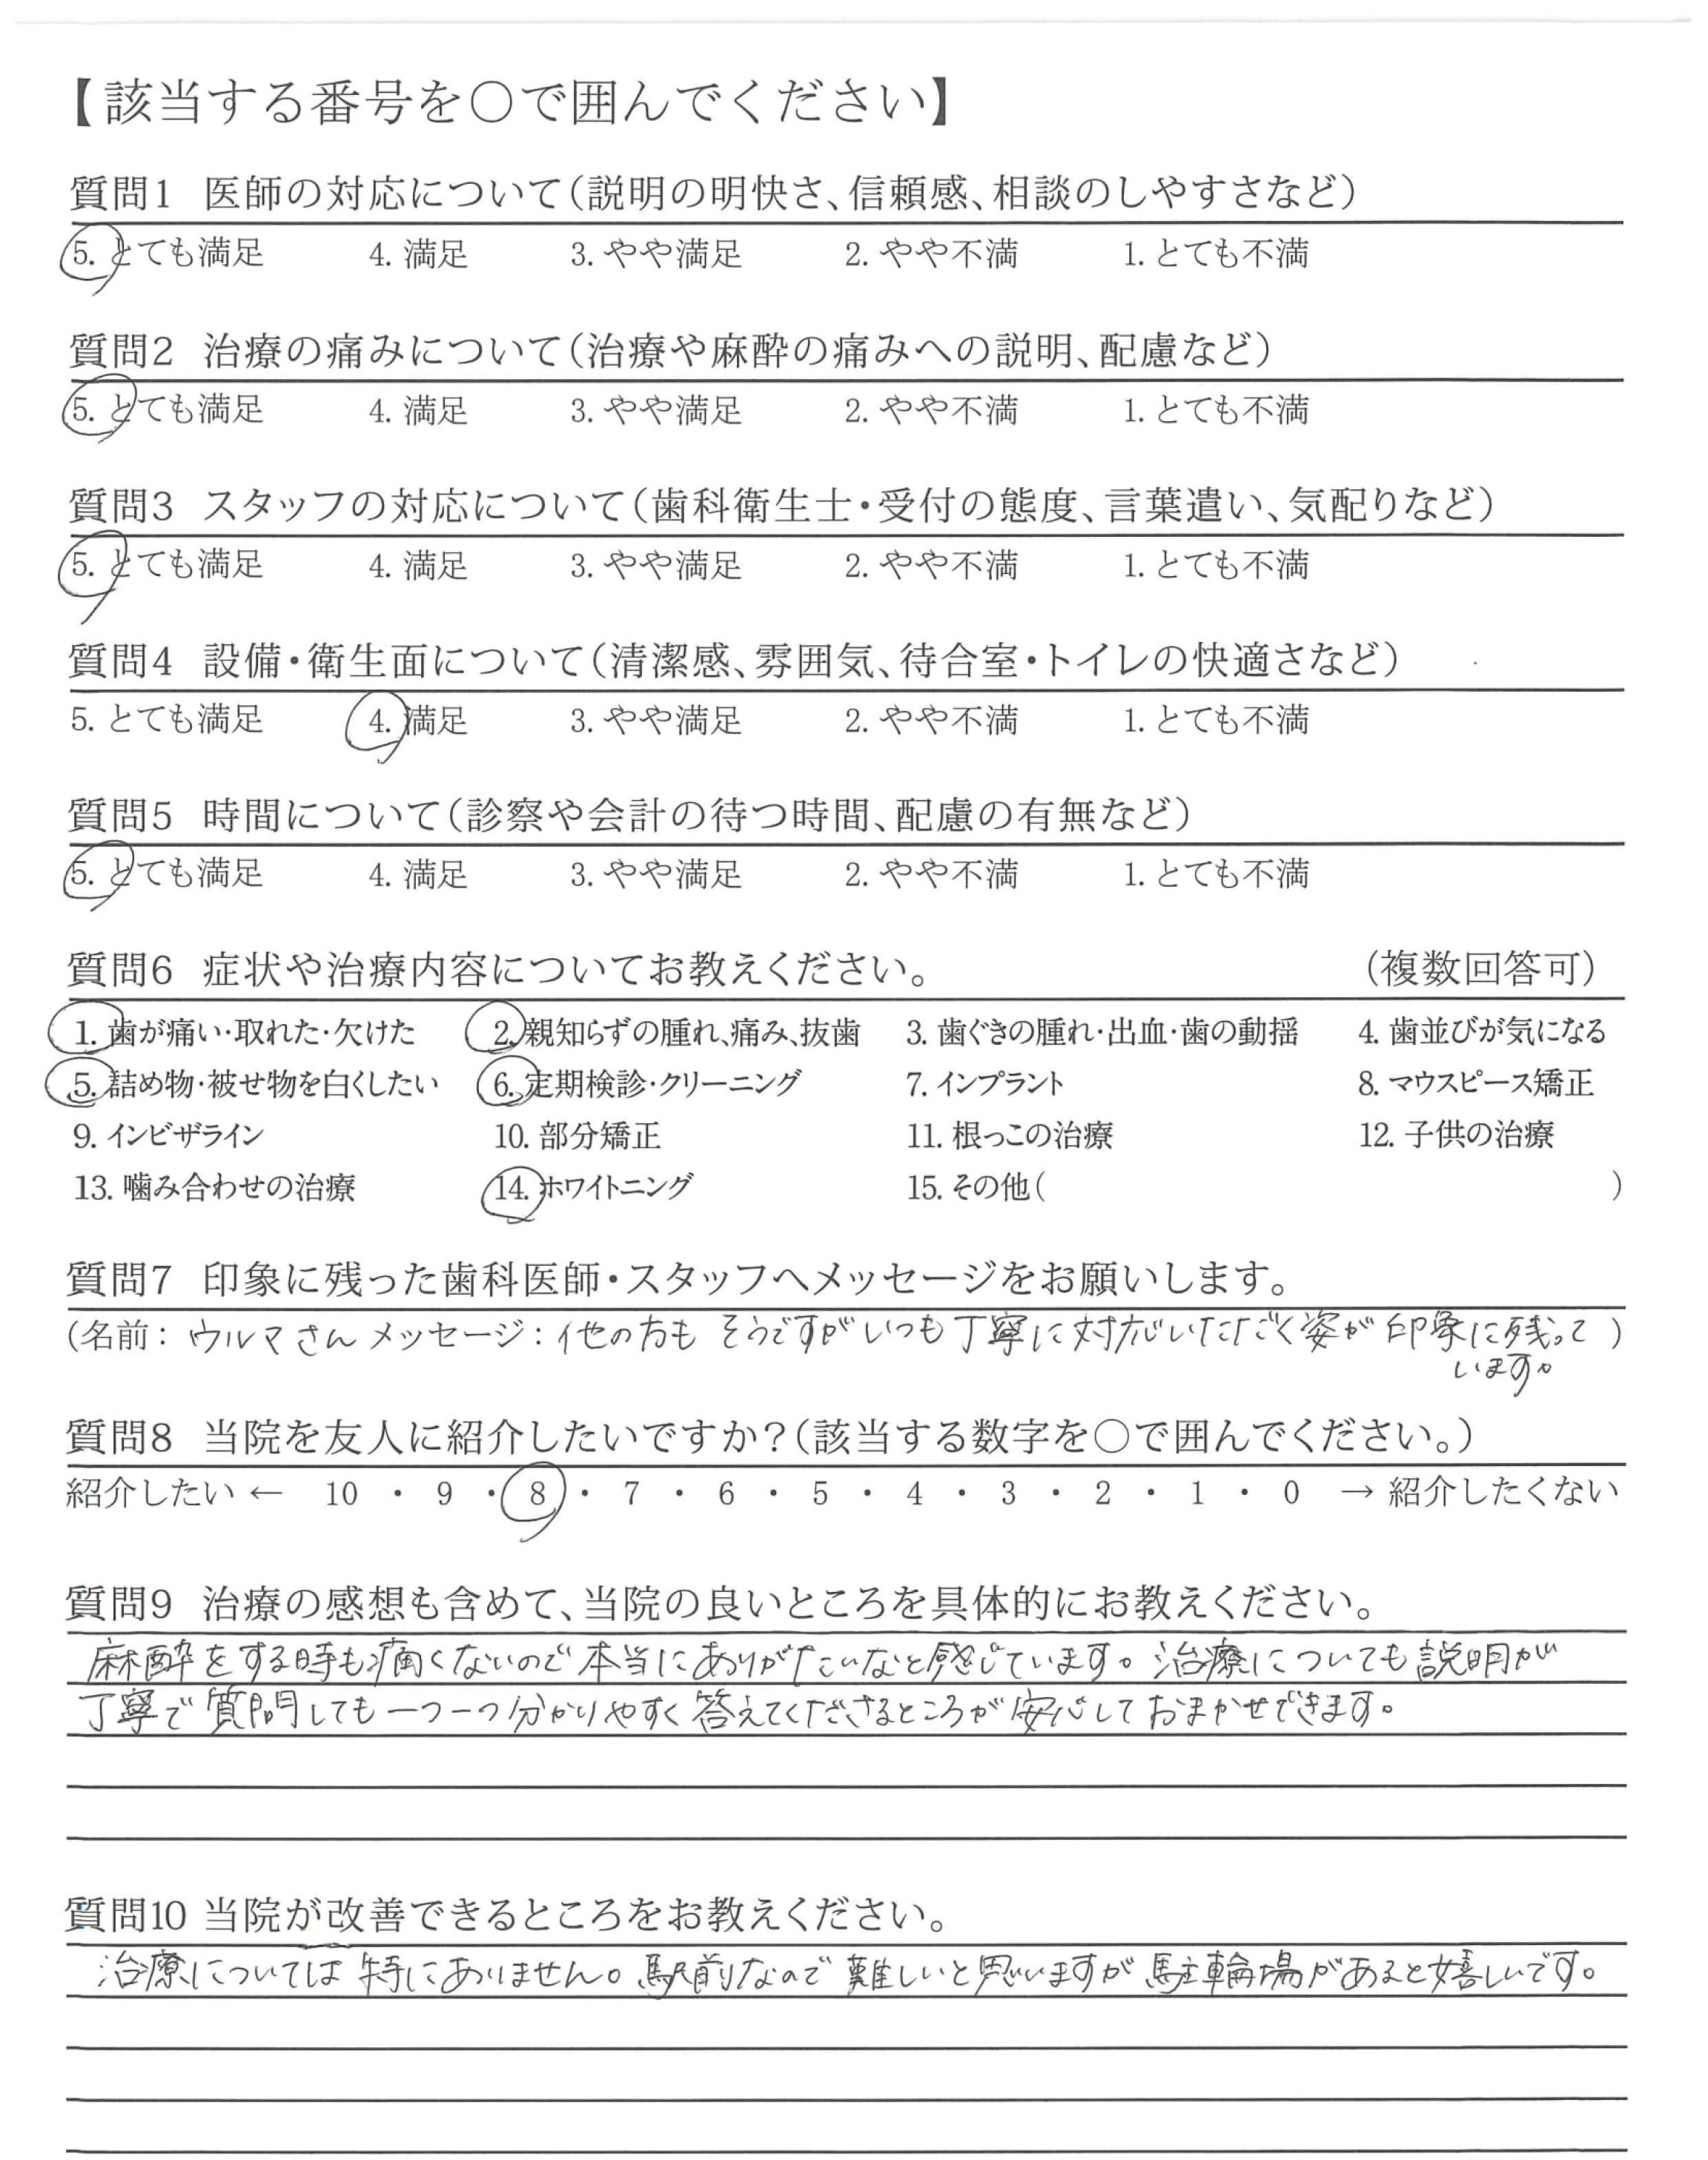 【該当する番号を○で囲んでください】
質問1 医師の対応について(説明の明快さ、信頼感、相談のしやすさなど)
5. とても満足 4. 満足 3. やや満足 2. やや不満 1. とても不満
質問2 治療の痛みについて(治療や麻酔の痛みへの説明、配慮など)
5. とても満足 4. 満足 3. やや満足 2. やや不満 1. とても不満
質問3 スタッフの対応について(歯科衛生士・受付の態度、言葉遣い、気配りなど)
5. とても満足 4. 満足 3. やや満足 2. やや不満 1. とても不満
質問4 設備・衛生面について(清潔感、雰囲気、待合室・トイレの快適さなど)
5. とても満足 4. 満足 3. やや満足 2. やや不満 1. とても不満
質問5 時間について(診察や会計の待つ時間、配慮の有無など)
5. とても満足 4. 満足 3. やや満足 2. やや不満 1. とても不満
質問6 症状や治療内容についてお教えください。 (複数回答可)
1. 歯が痛い・取れた・欠けた 2. 親知らずの腫れ、痛み、抜歯 3. 歯ぐきの腫れ・出血・歯の動揺 4. 歯並びが気になる
5. 詰め物・被せ物を白くしたい 6. 定期検診・クリーニング 7. インプラント 8. マウスピース矯正
9. インビザライン 10. 部分矯正 11. 根っこの治療 12. 子供の治療
13. 噛み合わせの治療 14. ホワイトニング 15. その他( )
質問7 印象に残った歯科医師・スタッフへメッセージをお願いします。
(名前: ウルマさん メッセージ: 他の方も そうですが いつも丁寧に対応いただく姿が 印象に残って )
います。
質問8 当院を友人に紹介したいですか?(該当する数字を○で囲んでください。)
紹介したい ← 10 ・ 9 ・ 8 ・ 7 ・ 6 ・ 5 ・ 4 ・ 3 ・ 2 ・ 1 ・ 0 → 紹介したくない
質問9 治療の感想も含めて、当院の良いところを具体的にお教えください。
麻酔をする時も痛くないので 本当にありがたいなと感じています。治療についても説明が
丁寧で 質問しても一つ一つ分かりやすく答えてくださるところが 安心しておまかせできます。
質問10 当院が改善できるところをお教えください。
治療については特にありません。駅前なので難しいと思いますが駐輪場があると嬉しいです。